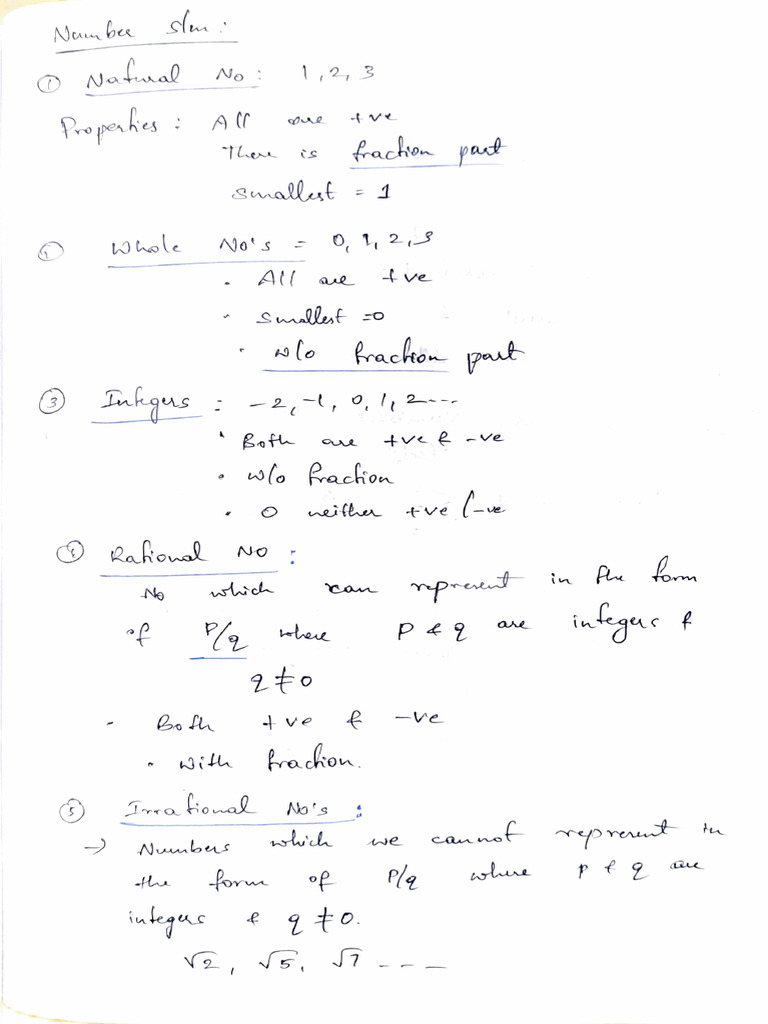 Number s/m :
① Natural No : 1, 2, 3
Properties : All are +ve
There is fraction part
smallest = 1
② Whole No's = 0, 1, 2, 3
• All are +ve
• smallest = 0
• w/o fraction part
③ Integers : -2, -1, 0, 1, 2 ...
• Both are +ve & -ve
• w/o fraction
• 0 neither +ve /-ve
④ Rational No :
No which can represent in the form
of P/q where P & q are integers &
q ≠ 0
• Both +ve & -ve
• with fraction.
⑤ Irrational No's :
→ Numbers which we cannot represent in
the form of P/q where P & q are
integers & q ≠ 0.
√2, √5, √7 - - -